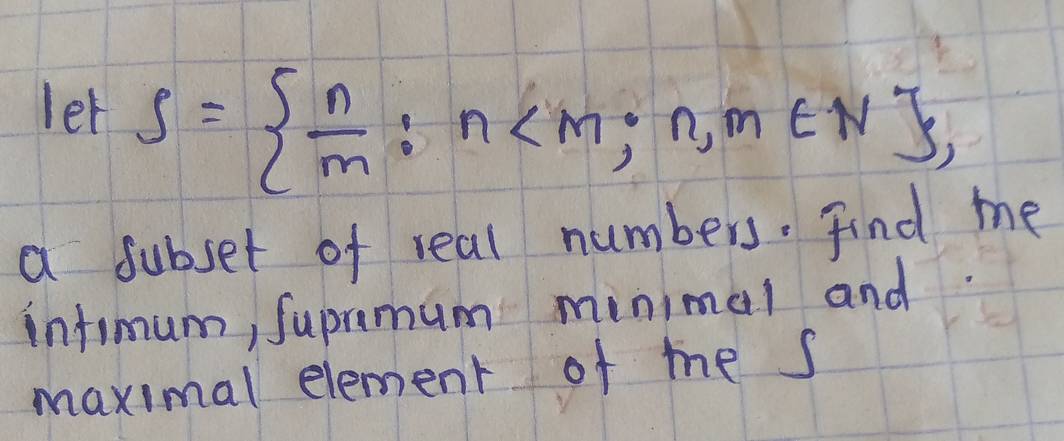 let S = { n/m : n < m; n, m ∈ N },
a subset of real numbers. Find the
infimum, supremum minimal and
maximal element of the S